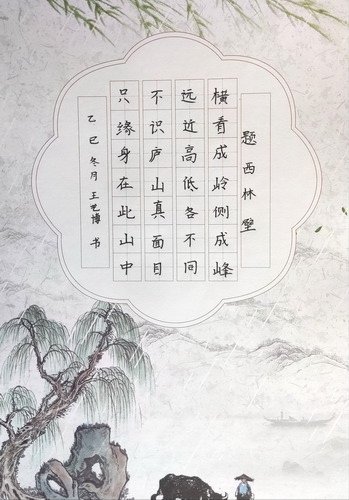 题西林壁
横看成岭侧成峰
远近高低各不同
不识庐山真面目
只缘身在此山中
乙巳冬月王艺博书